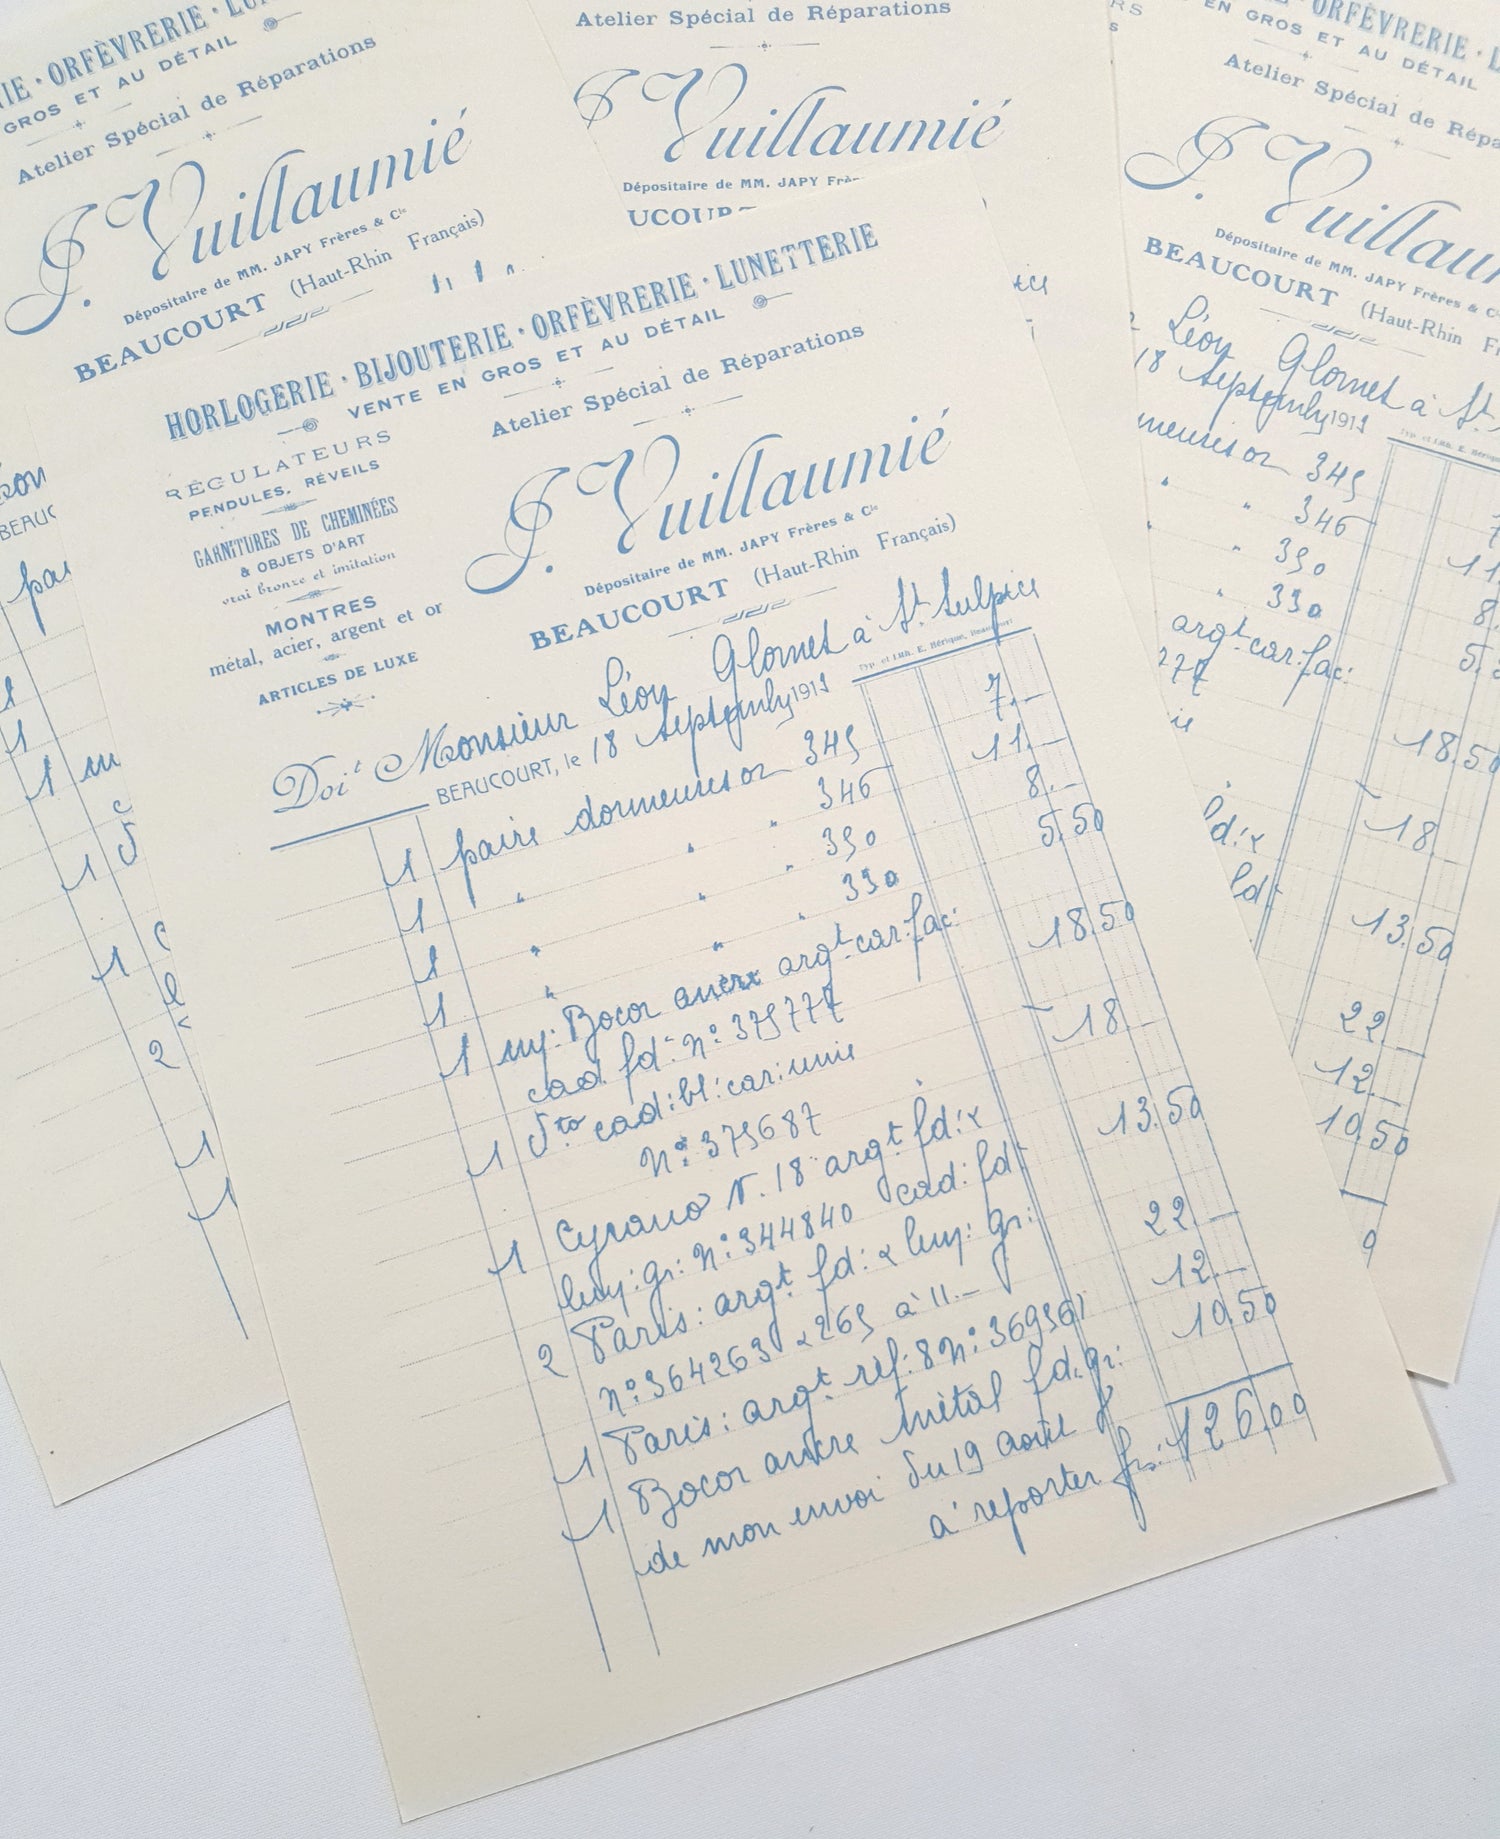 HORLOGERIE · BIJOUTERIE · ORFÈVRERIE · LUNETTERIE
VENTE EN GROS ET AU DÉTAIL
Atelier Spécial de Réparations
RÉGULATEURS
PENDULES, RÉVEILS
GARNITURES DE CHEMINÉES
& OBJETS D'ART
vrai bronze et imitation
MONTRES
métal, acier, argent et or
ARTICLES DE LUXE
J. Vuillaumié
Dépositaire de MM. JAPY Frères & Cie
BEAUCOURT (Haut-Rhin Français)
Doit Monsieur Léon Glornet à St Sulpice
BEAUCOURT, le 18 Septembre 1911
Typ. et Lith. E. Bérique, Beaucourt
1 paire dormeuses or 345 7.-
1 " " " 346 11.-
1 " " " 350 8.-
1 " " " 330 5.50
1 Bocor ancre argt car: fac: 18.50
cad fd: No: 375777
1 dto cad: bl: car: unie 18.-
No: 375687
1 Cyrano N. 18 argt fd: & 13.50
luy: gr: No: 344840 cad: fd:
2 Paris: argt fd: & luy: gr: 22.-
No: 364263 & 265 à 11.-
1 Paris: argt réf: 8 No: 369561 12.-
1 Bocor ancre métal fd. gr: 10.50
de mon envoi du 19 août
à reporter frs: 126.00
IE · ORFÈVRERIE · LU
GROS ET AU DÉTAIL
Atelier Spécial de Réparations
J. Vuillaumié
Dépositaire de MM. JAPY Frères & Cie
BEAUCOURT (Haut-Rhin Français)
Atelier Spécial de Réparations
J. Vuillaumié
Dépositaire de MM. JAPY Frè
UCOUR
ORFÈVRERIE · L
EN GROS ET AU DÉTAIL
Atelier Spécial de Répa
J. Vuillau
Dépositaire de MM. JAPY Frères & C
BEAUCOURT (Haut-Rhin F
Léon Glornet à St.
18 Septembre 1911
Typ. et Lith. E. Bériq
meuses or 345
" 346 11
" 350 8.
" 330 5.5
argt car: fac:
277
18.50
18
13.50
22
12.
10.50
BEAUC
pai
1
1
1
1
1
2
1
1